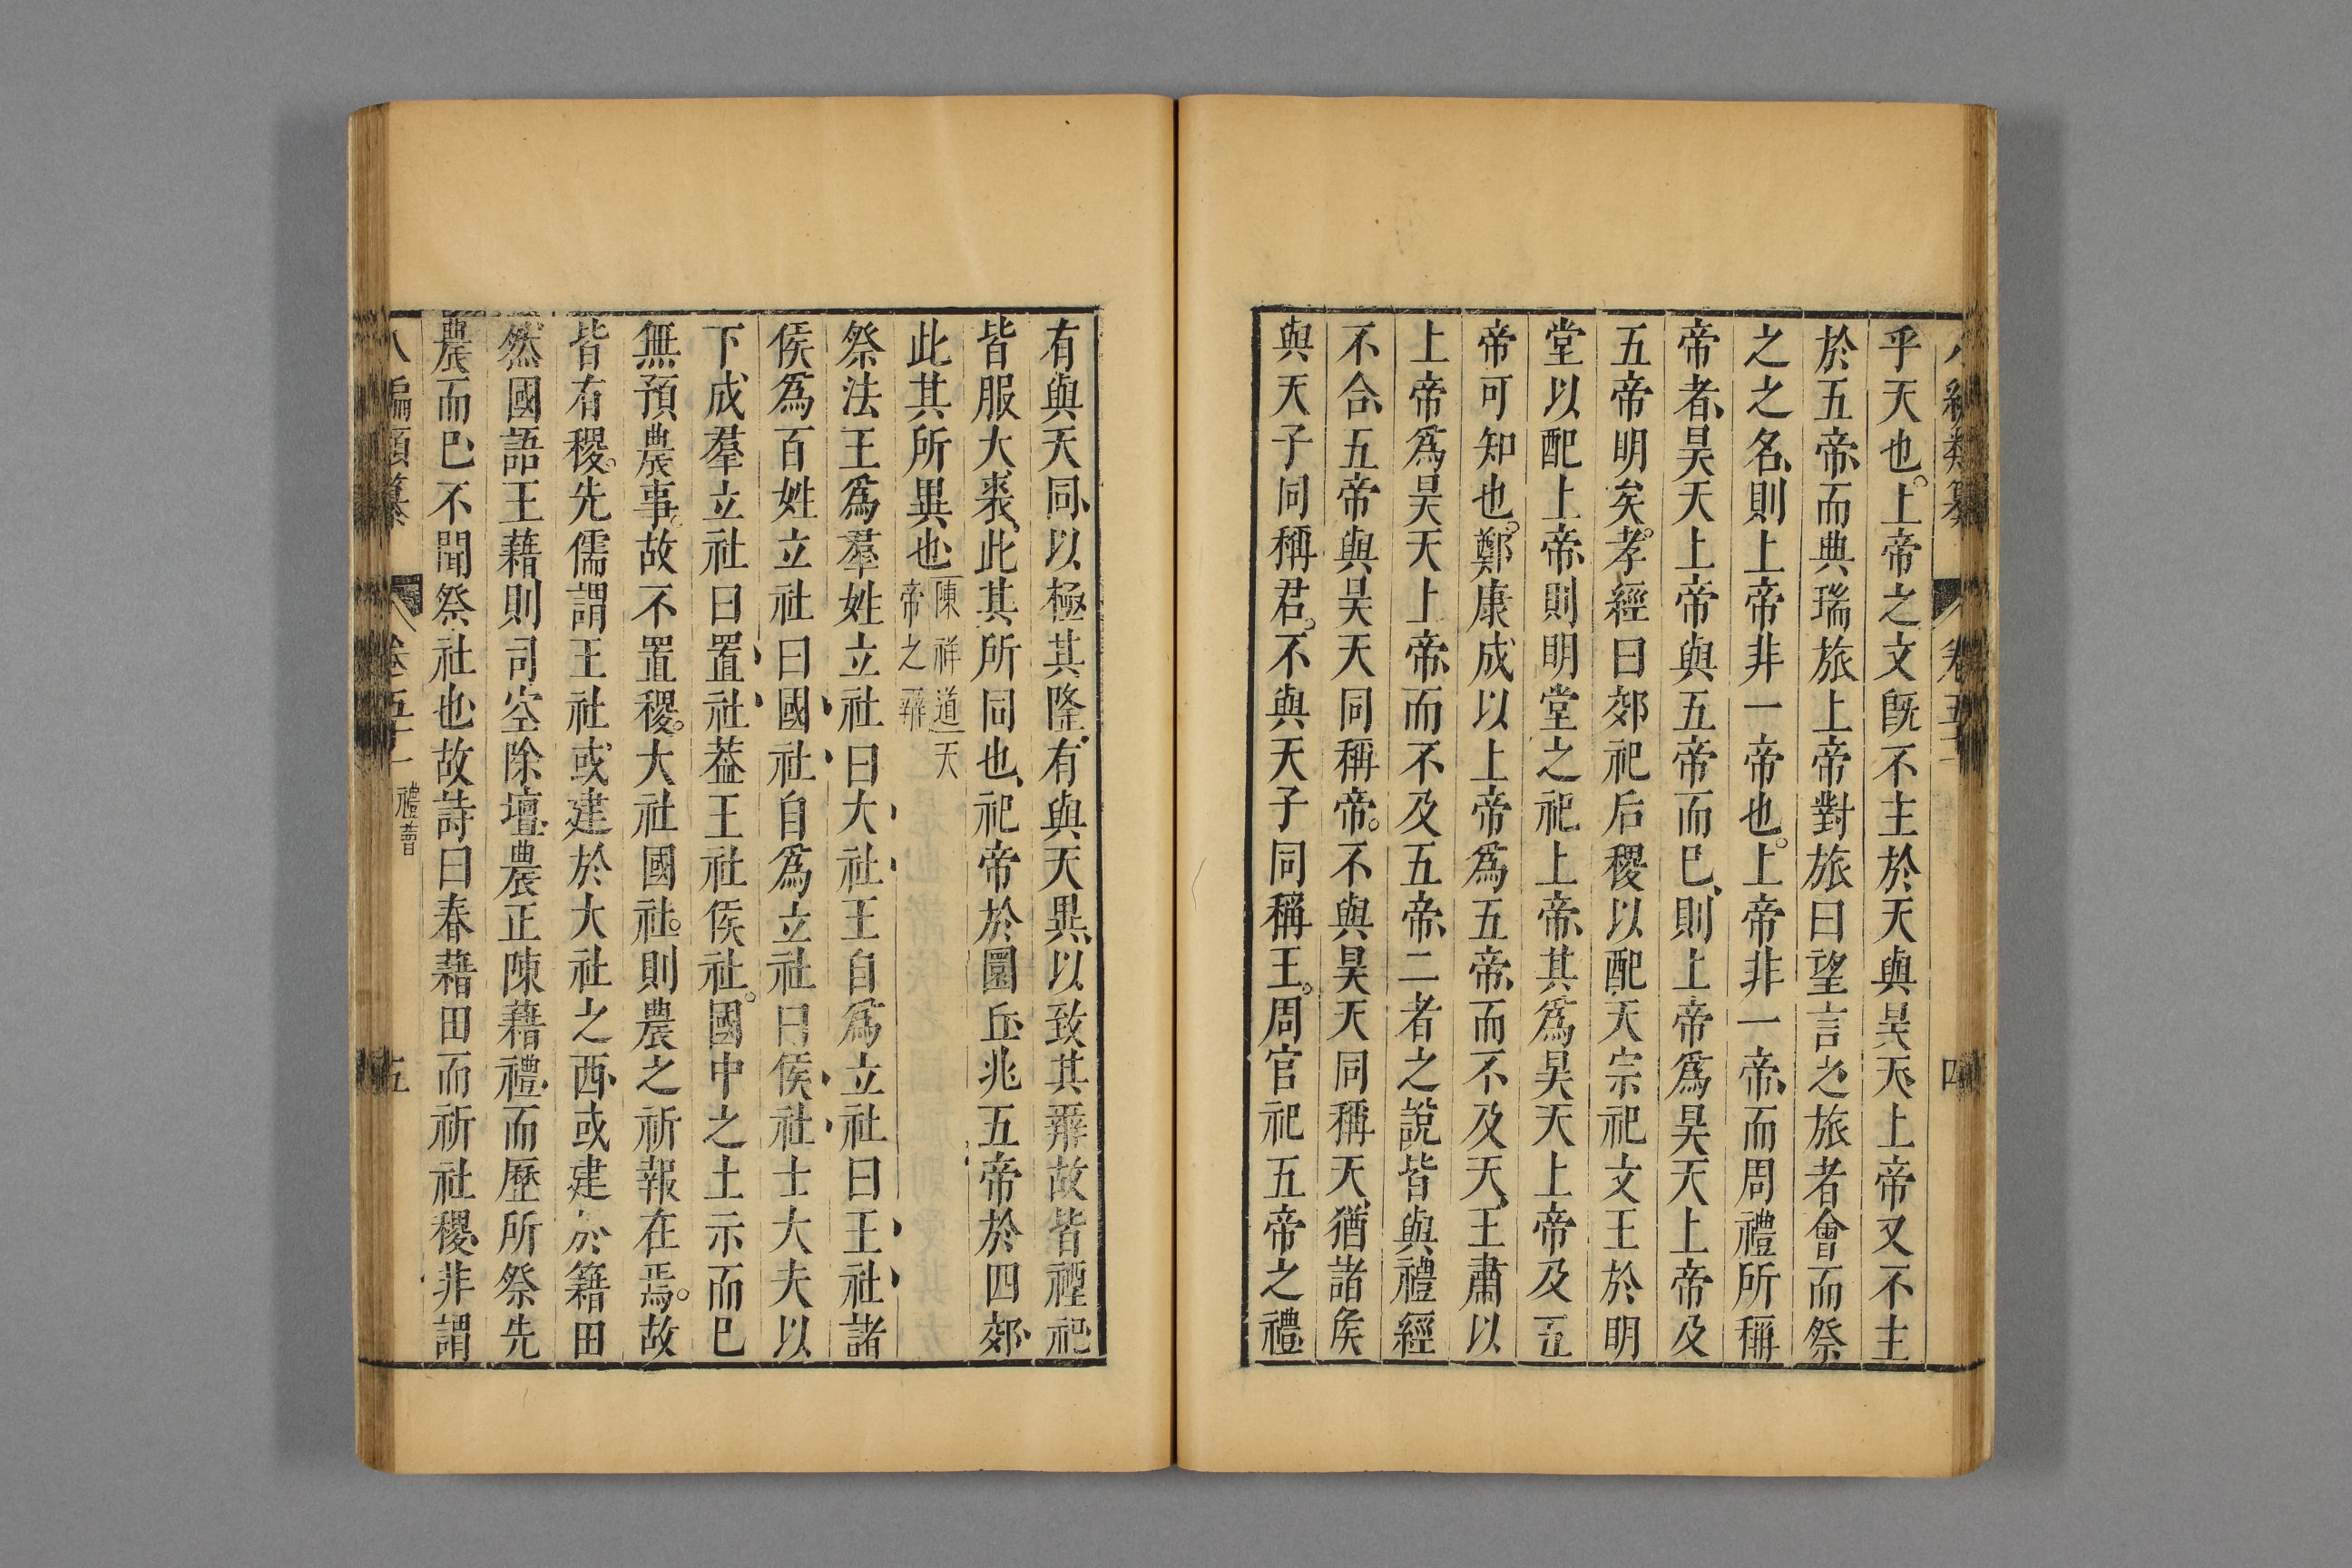 八編類纂 卷五十一 四
乎天也。上帝之文既不主於天與昊天上帝又不主
於五帝、而典瑞旅上帝對旅曰望言之、旅者會而祭
之之名、則上帝非一帝也。上帝非一帝、而周禮所稱
帝者、昊天上帝與五帝而已、則上帝爲昊天上帝及
五帝明矣。孝經曰郊祀后稷以配天宗祀文王於明
堂以配上帝、則明堂之祀上帝、其爲昊天上帝及五
帝可知也。鄭康成以上帝爲五帝、而不及天、王肅以
上帝爲昊天上帝、而不及五帝、二者之說皆與禮經
不合、五帝與昊天同稱帝。不與昊天同稱天、猶諸矦
與天子同稱君。不與天子同稱王。周官祀五帝之禮
有與天同、以極其隆、有與天異、以致其辨故皆禋祀
皆服大裘、此其所同也、祀帝於圜丘、兆五帝於四郊、
此其所異也 陳祥道天
帝之辨
祭法王爲羣姓立社曰大社王自爲立社曰王社諸
侯爲百姓立社曰國社自爲立社曰侯社士大夫以
下、成羣立社曰置社、葢王社侯社。國中之土示而已
無預農事。故不置稷。大社國社。則農之祈報在焉。故
皆有稷。先儒謂王社或建於大社之西、或建於籍田
然國語王藉則司空除壇、農正陳藉禮、而歷所祭先
農而已、不聞祭社也、故詩曰春藉田而祈社稷、非謂
八編類纂 卷五十一 禮薈 五